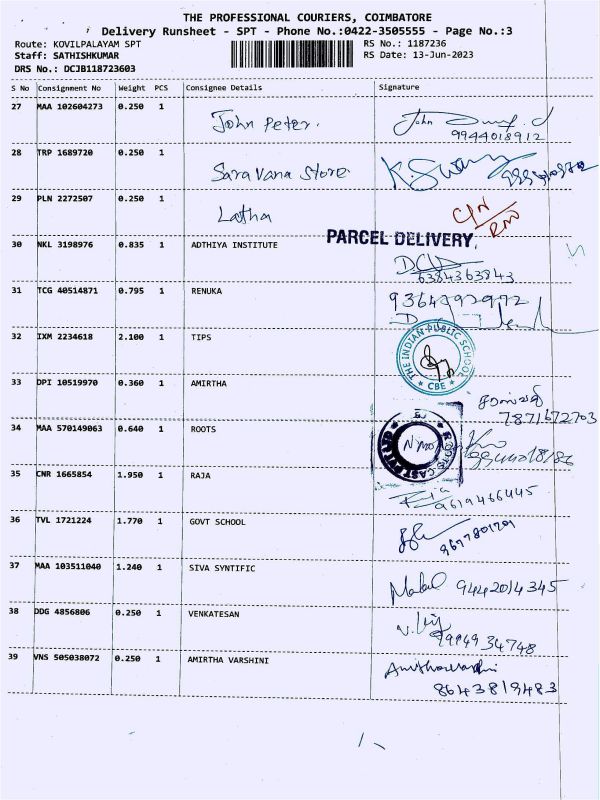 THE PROFESSIONAL COURIERS, COIMBATORE
Delivery Runsheet - SPT - Phone No.:0422-3505555 - Page No.:3
Route: KOVILPALAYAM SPT RS No.: 1187236
Staff: SATHISHKUMAR RS Date: 13-Jun-2023
DRS No.: DCJB118723603
S No Consignment No Weight PCS Consignee Details Signature
27 MAA 102604273 0.250 1 John Peter. John
9944018912
28 TRP 1689720 0.250 1 Saravana Store K. Swamy
29 PLN 2272507 0.250 1 Latha C/N
RND
PARCEL DELIVERY
30 NKL 3198976 0.835 1 ADTHIYA INSTITUTE
6384363843
31 TCG 40514871 0.795 1 RENUKA
32 IXM 2234618 2.100 1 TIPS THE INDIAN PUBLIC SCHOOL
CBE
33 DPI 10519970 0.360 1 AMIRTHA
7871672703
34 MAA 570149063 0.640 1 ROOTS ROOTS CAST PVT LTD
35 CNR 1665854 1.950 1 RAJA Raja
9619466445
36 TVL 1721224 1.770 1 GOVT SCHOOL
9677801701
37 MAA 103511040 1.240 1 SIVA SYNTIFIC
9442014345
38 DDG 4856806 0.250 1 VENKATESAN
39 VNS 505038072 0.250 1 AMIRTHA VARSHINI Amirthavarshini
8643819483